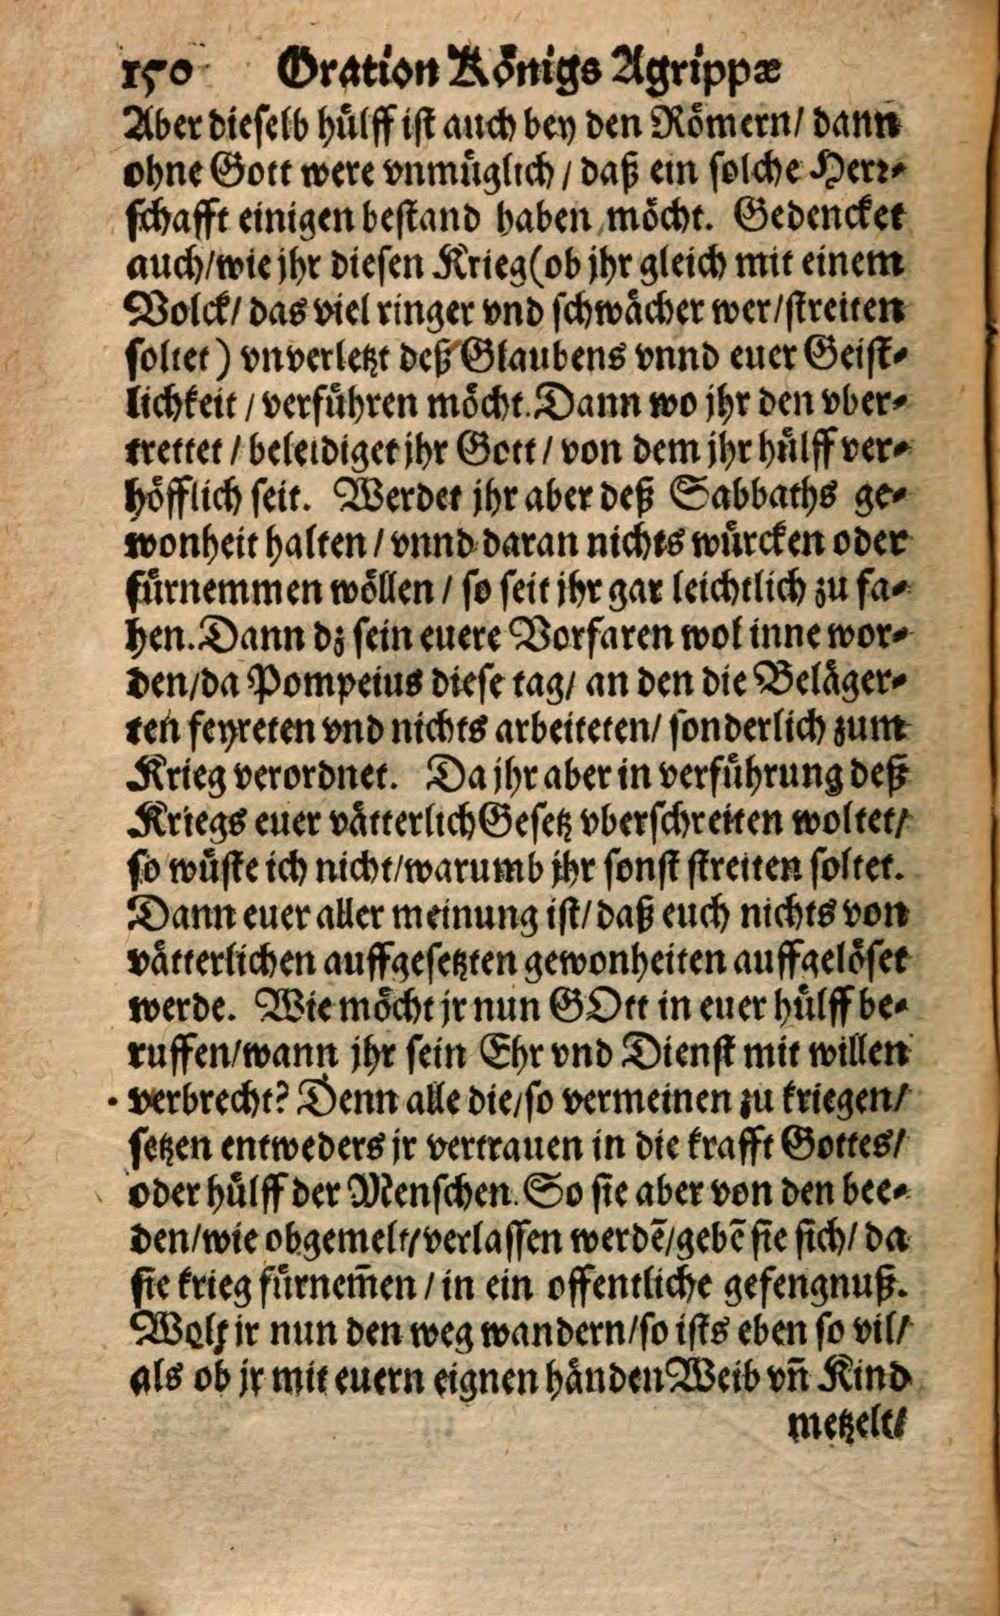 150 Oration Königs Agrippæ
Aber dieselb hülff ist auch bey den Römern/ dann
ohne Gott were vnmüglich / daß ein solche Herr-
schafft einigen bestand haben möcht. Gedencket
auch/wie jhr diesen Krieg(ob jhr gleich mit einem
Volck/ das viel ringer vnd schwächer wer/streiten
soltet) vnverletzt deß Glaubens vnnd euer Geist-
lichkeit / verführen möcht. Dann wo jhr den vber-
trettet / beleidiget jhr Gott / von dem jhr hülff ver-
höfflich seit. Werdet jhr aber deß Sabbaths ge-
wonheit halten / vnnd daran nichts würcken oder
fürnemmen wöllen / so seit jhr gar leichtlich zu fa-
hen. Dann dz sein euere Vorfaren wol inne wor-
den/da Pompeius diese tag/ an den die Beläger-
ten feyreten vnd nichts arbeiteten/ sonderlich zum
Krieg verordnet. Da jhr aber in verführung deß
Kriegs euer vätterlich Gesetz vberschreiten woltet/
so wüste ich nicht/warumb jhr sonst streiten soltet.
Dann euer aller meinung ist/ daß euch nichts von
vätterlichen auffgesetzten gewonheiten auffgelöset
werde. Wie möcht jr nun GOtt in euer hülff be-
ruffen/wann jhr sein Ehr vnd Dienst mit willen
verbrecht? Denn alle die/so vermeinen zu kriegen/
setzen entweders jr vertrauen in die krafft Gottes/
oder hülff der Menschen. So sie aber von den bee-
den/wie obgemelt/verlassen werdē/gebē sie sich/ da
sie krieg fürnem̄en / in ein offentliche gefengnuß.
Wolt jr nun den weg wandern/so ists eben so vil/
als ob jr mit euern eignen händen Weib vn̄ Kind
metzelt/